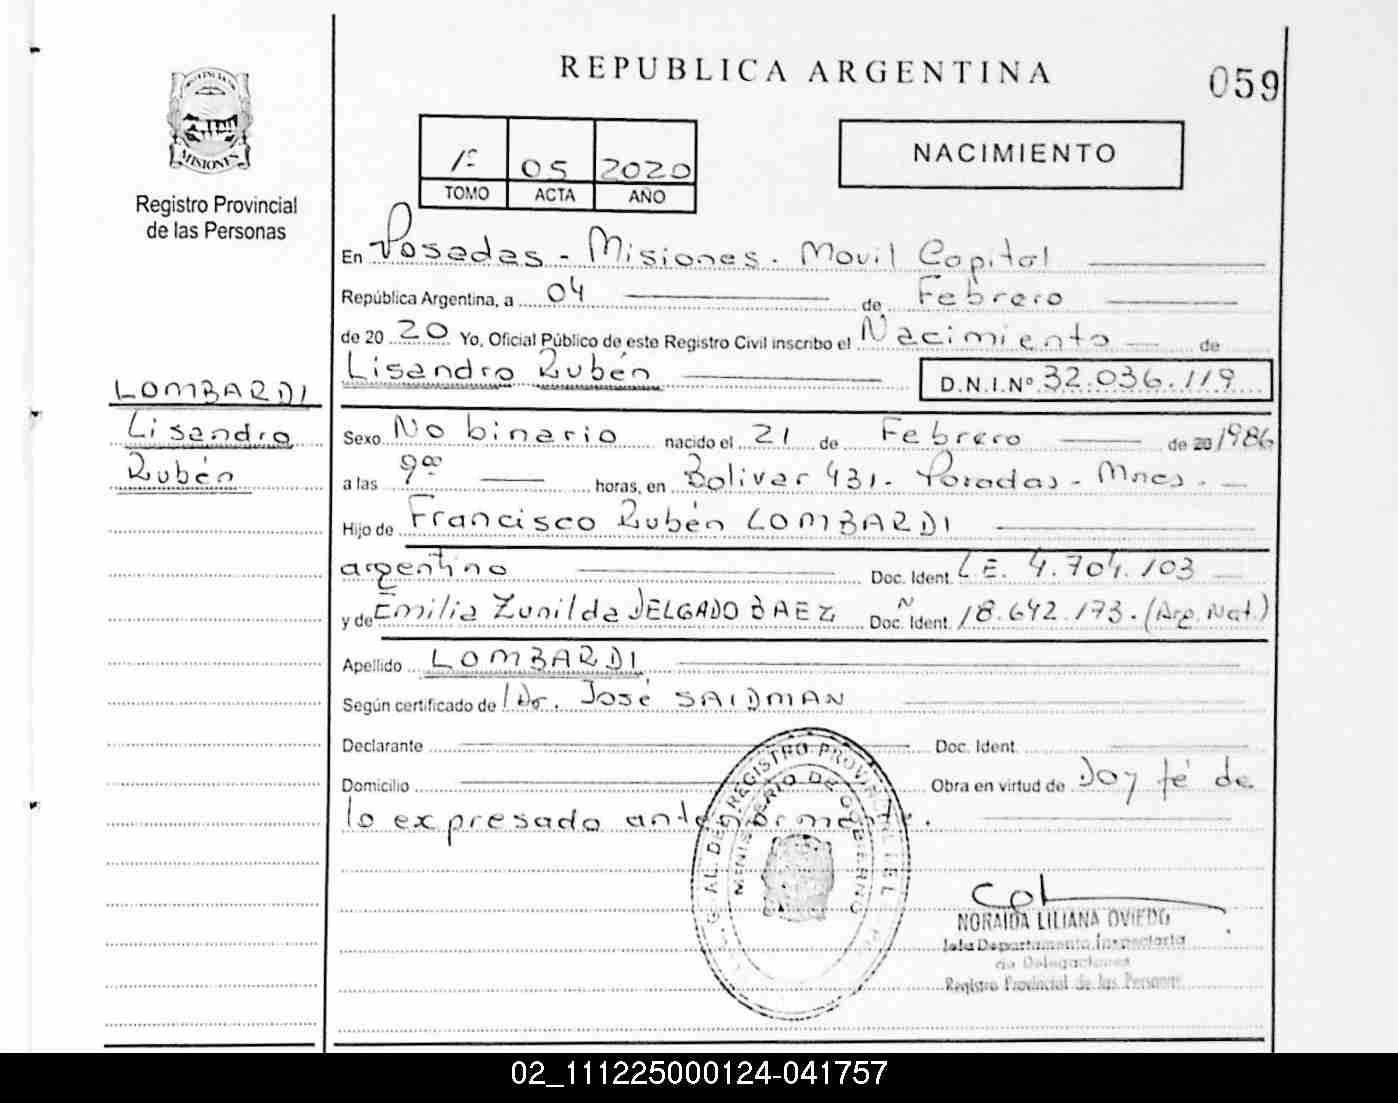 REPUBLICA ARGENTINA
059
MISIONES
Registro Provincial
de las Personas
1º 05 2020
TOMO ACTA AÑO
NACIMIENTO
En Posadas - Misiones - Movil Capital
República Argentina, a 04 de Febrero
de 20 20 Yo, Oficial Público de este Registro Civil inscribo el Nacimiento de
Lisandro Rubén D.N.I.Nº 32.036.119
LOMBARDI
Lisandro
Rubén
Sexo No binario nacido el 21 de Febrero de 20 1986
a las 9 00 horas, en Bolivar 431 - Posadas - Mnes -
Hijo de Francisco Rubén LOMBARDI
argentino Doc. Ident. L.E. 4.704.103
y de Emilia Zunilda DELGADO BAEZ Doc. Ident. N 18.642.173. (Arg. Nat.)
Apellido LOMBARDI
Según certificado de Dr. José SAIDMAN
Declarante Doc. Ident.
Domicilio Obra en virtud de Doy fé de
lo expresado anteriormente.
REGISTRO PROVINCIAL DE
MINISTERIO DE GOBIERNO
NORAIDA LILIANA OVIEDO
Jefa Departamento Inspectoría
de Delegaciones
Registro Provincial de las Personas
02_111225000124-041757